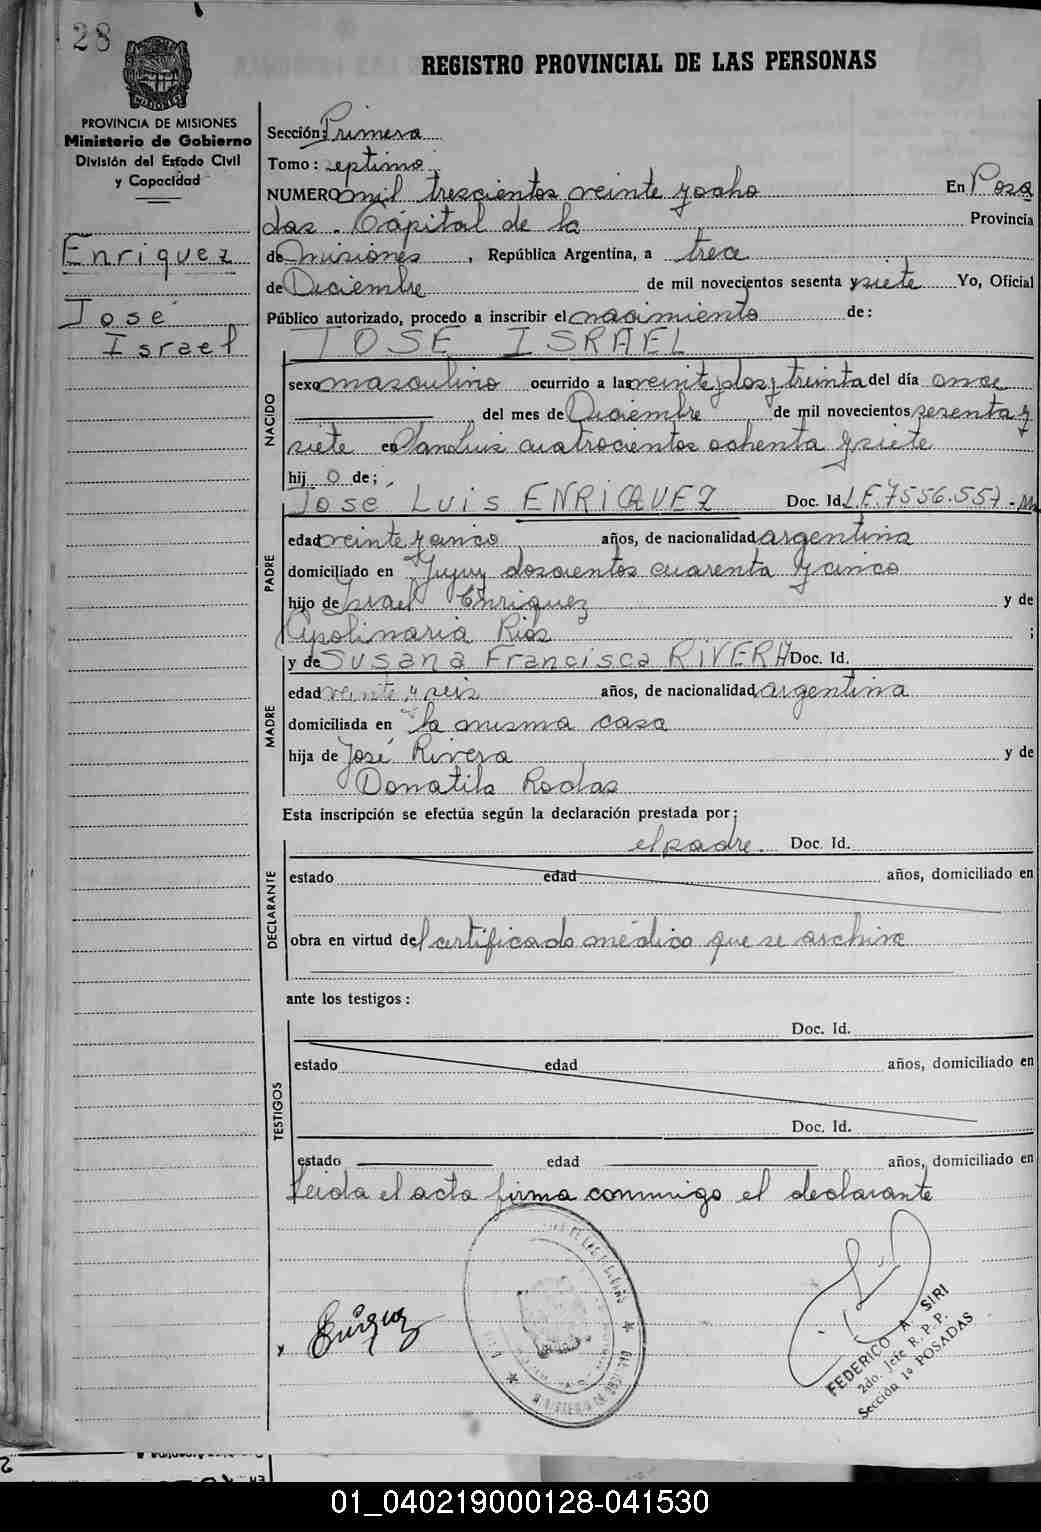 28
REGISTRO PROVINCIAL DE LAS PERSONAS
PROVINCIA DE MISIONES
Ministerio de Gobierno
División del Estado Civil
y Capacidad
Enriquez
José
Israel
Sección: Primera
Tomo: septimo
NUMERO mil trescientos veinte y ocho En Posa
das. Capital de la Provincia
de Misiones, República Argentina, a trece
de Diciembre de mil novecientos sesenta y siete Yo, Oficial
Público autorizado, procedo a inscribir el nacimiento de:
JOSE ISRAEL
NACIDO
sexo masculino ocurrido a las veinte y dos y treinta del día once
del mes de Diciembre de mil novecientos sesenta y
siete en San Luis cuatrocientos ochenta y siete
hij o de;
José Luis ENRIQUEZ Doc. Id. L.E. 7.556.557-M
PADRE
edad veinte y cinco años, de nacionalidad argentina
domiciliado en Jujuy doscientos cuarenta y cinco
hijo de Israel Enriquez y de
Apolinaria Rios ;
y de Susana Francisca RIVERA Doc. Id.
MADRE
edad veinte y seis años, de nacionalidad argentina
domiciliada en la misma casa
hija de José Rivera y de
Donatila Rodas
Esta inscripción se efectúa según la declaración prestada por:
el padre. Doc. Id.
DECLARANTE
estado edad años, domiciliado en
obra en virtud del certificado médico que se archiva
ante los testigos:
Doc. Id.
TESTIGOS
estado edad años, domiciliado en
Doc. Id.
estado edad años, domiciliado en
Leida el acta firma conmigo el declarante
FEDERICO A. SIRI
2do. Jefe R. P. P.
Sección 1º POSADAS
01_040219000128-041530